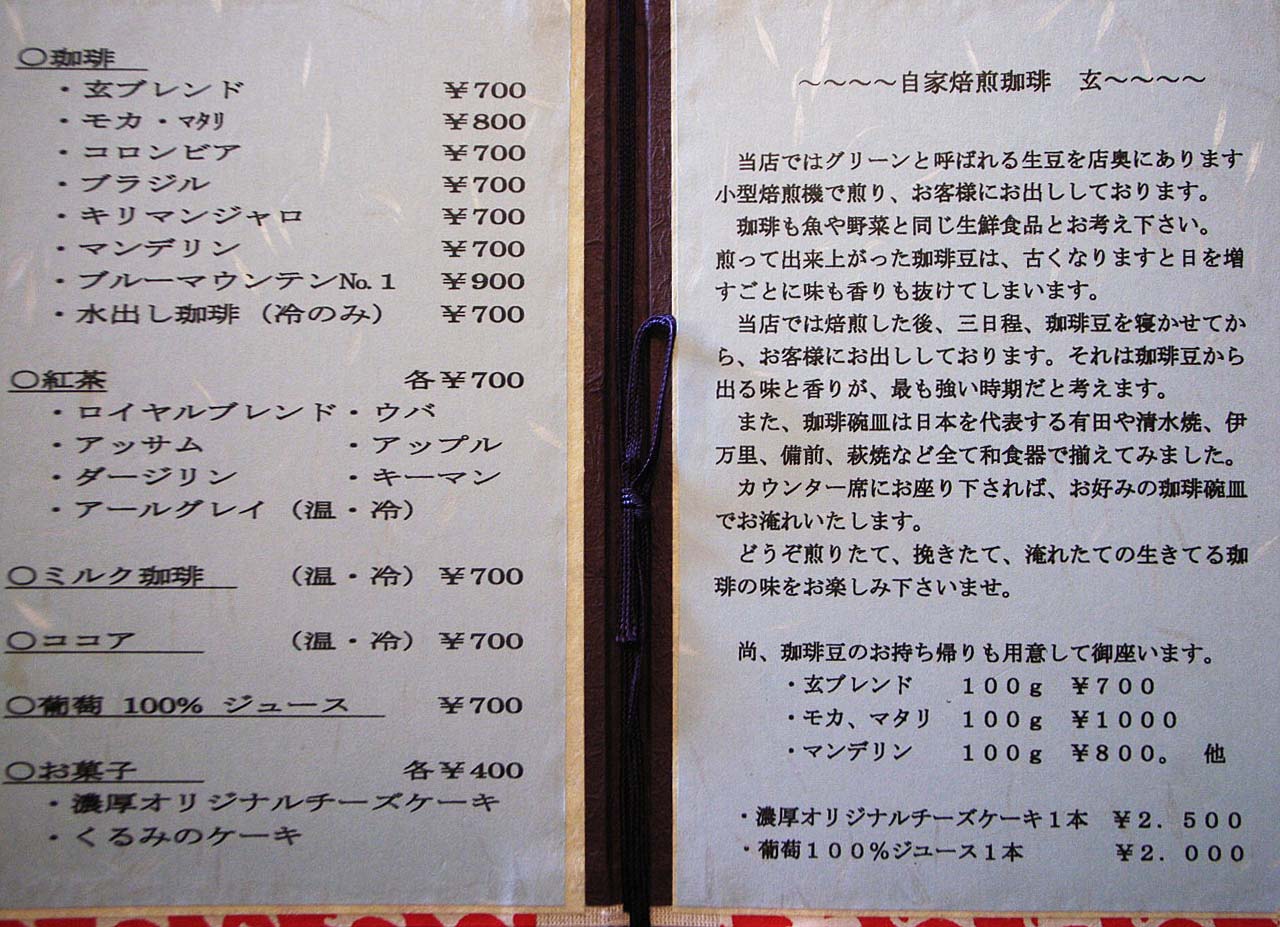 ○珈琲
・玄ブレンド ￥700
・モカ・ﾏﾀﾘ ￥800
・コロンビア ￥700
・ブラジル ￥700
・キリマンジャロ ￥700
・マンデリン ￥700
・ブルーマウンテン№１ ￥900
・水出し珈琲（冷のみ） ￥700
○紅茶 各￥700
・ロイヤルブレンド・ウバ
・アッサム ・アップル
・ダージリン ・キーマン
・アールグレイ（温・冷）
○ミルク珈琲 （温・冷）￥700
○ココア （温・冷）￥700
○葡萄 100% ジュース ￥700
○お菓子 各￥400
・濃厚オリジナルチーズケーキ
・くるみのケーキ
～～～～自家焙煎珈琲 玄～～～～
当店ではグリーンと呼ばれる生豆を店奥にあります
小型焙煎機で煎り、お客様にお出ししております。
珈琲も魚や野菜と同じ生鮮食品とお考え下さい。
煎って出来上がった珈琲豆は、古くなりますと日を増
すごとに味も香りも抜けてしまいます。
当店では焙煎した後、三日程、珈琲豆を寝かせてか
ら、お客様にお出ししております。それは珈琲豆から
出る味と香りが、最も強い時期だと考えます。
また、珈琲碗皿は日本を代表する有田や清水焼、伊
万里、備前、萩焼など全て和食器で揃えてみました。
カウンター席にお座り下されば、お好みの珈琲碗皿
でお淹れいたします。
どうぞ煎りたて、挽きたて、淹れたての生きてる珈
琲の味をお楽しみ下さいませ。
尚、珈琲豆のお持ち帰りも用意して御座います。
・玄ブレンド １００ｇ ￥７００
・モカ、マタリ １００ｇ ￥１０００
・マンデリン １００ｇ ￥８００。 他
・濃厚オリジナルチーズケーキ１本 ￥２．５００
・葡萄１００％ジユース１本 ￥２．０００